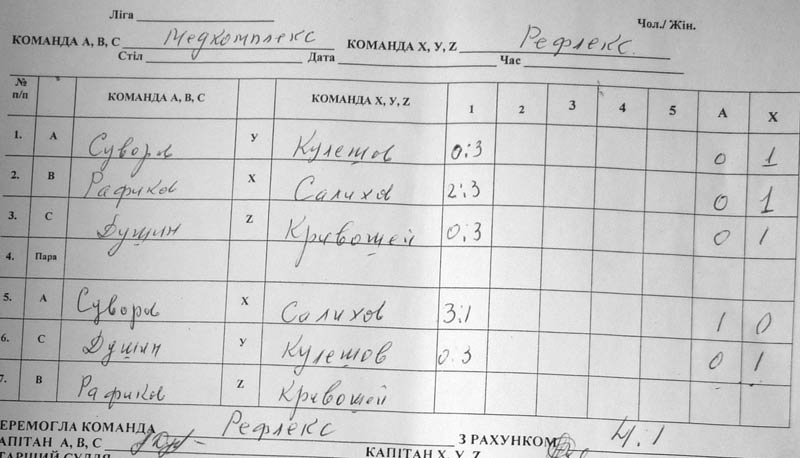 Ліга Чол./ Жін.
КОМАНДА А, В, С Медкомплекс КОМАНДА Х, У, Z Рефлекс
Стіл Дата Час
№ п/п КОМАНДА А, В, С КОМАНДА Х, У, Z 1 2 3 4 5 А Х
1. А Суворов У Кулешов 0:3 0 1
2. В Рафиков Х Салихов 2:3 0 1
3. С Душин Z Кривошей 0:3 0 1
4. Пара
5. А Суворов Х Салихов 3:1 1 0
6. С Душин У Кулешов 0:3 0 1
7. В Рафиков Z Кривошей
ЕРЕМОГЛА КОМАНДА Рефлекс З РАХУНКОМ 4:1
АПІТАН А, В, С КАПІТАН Х, У, Z